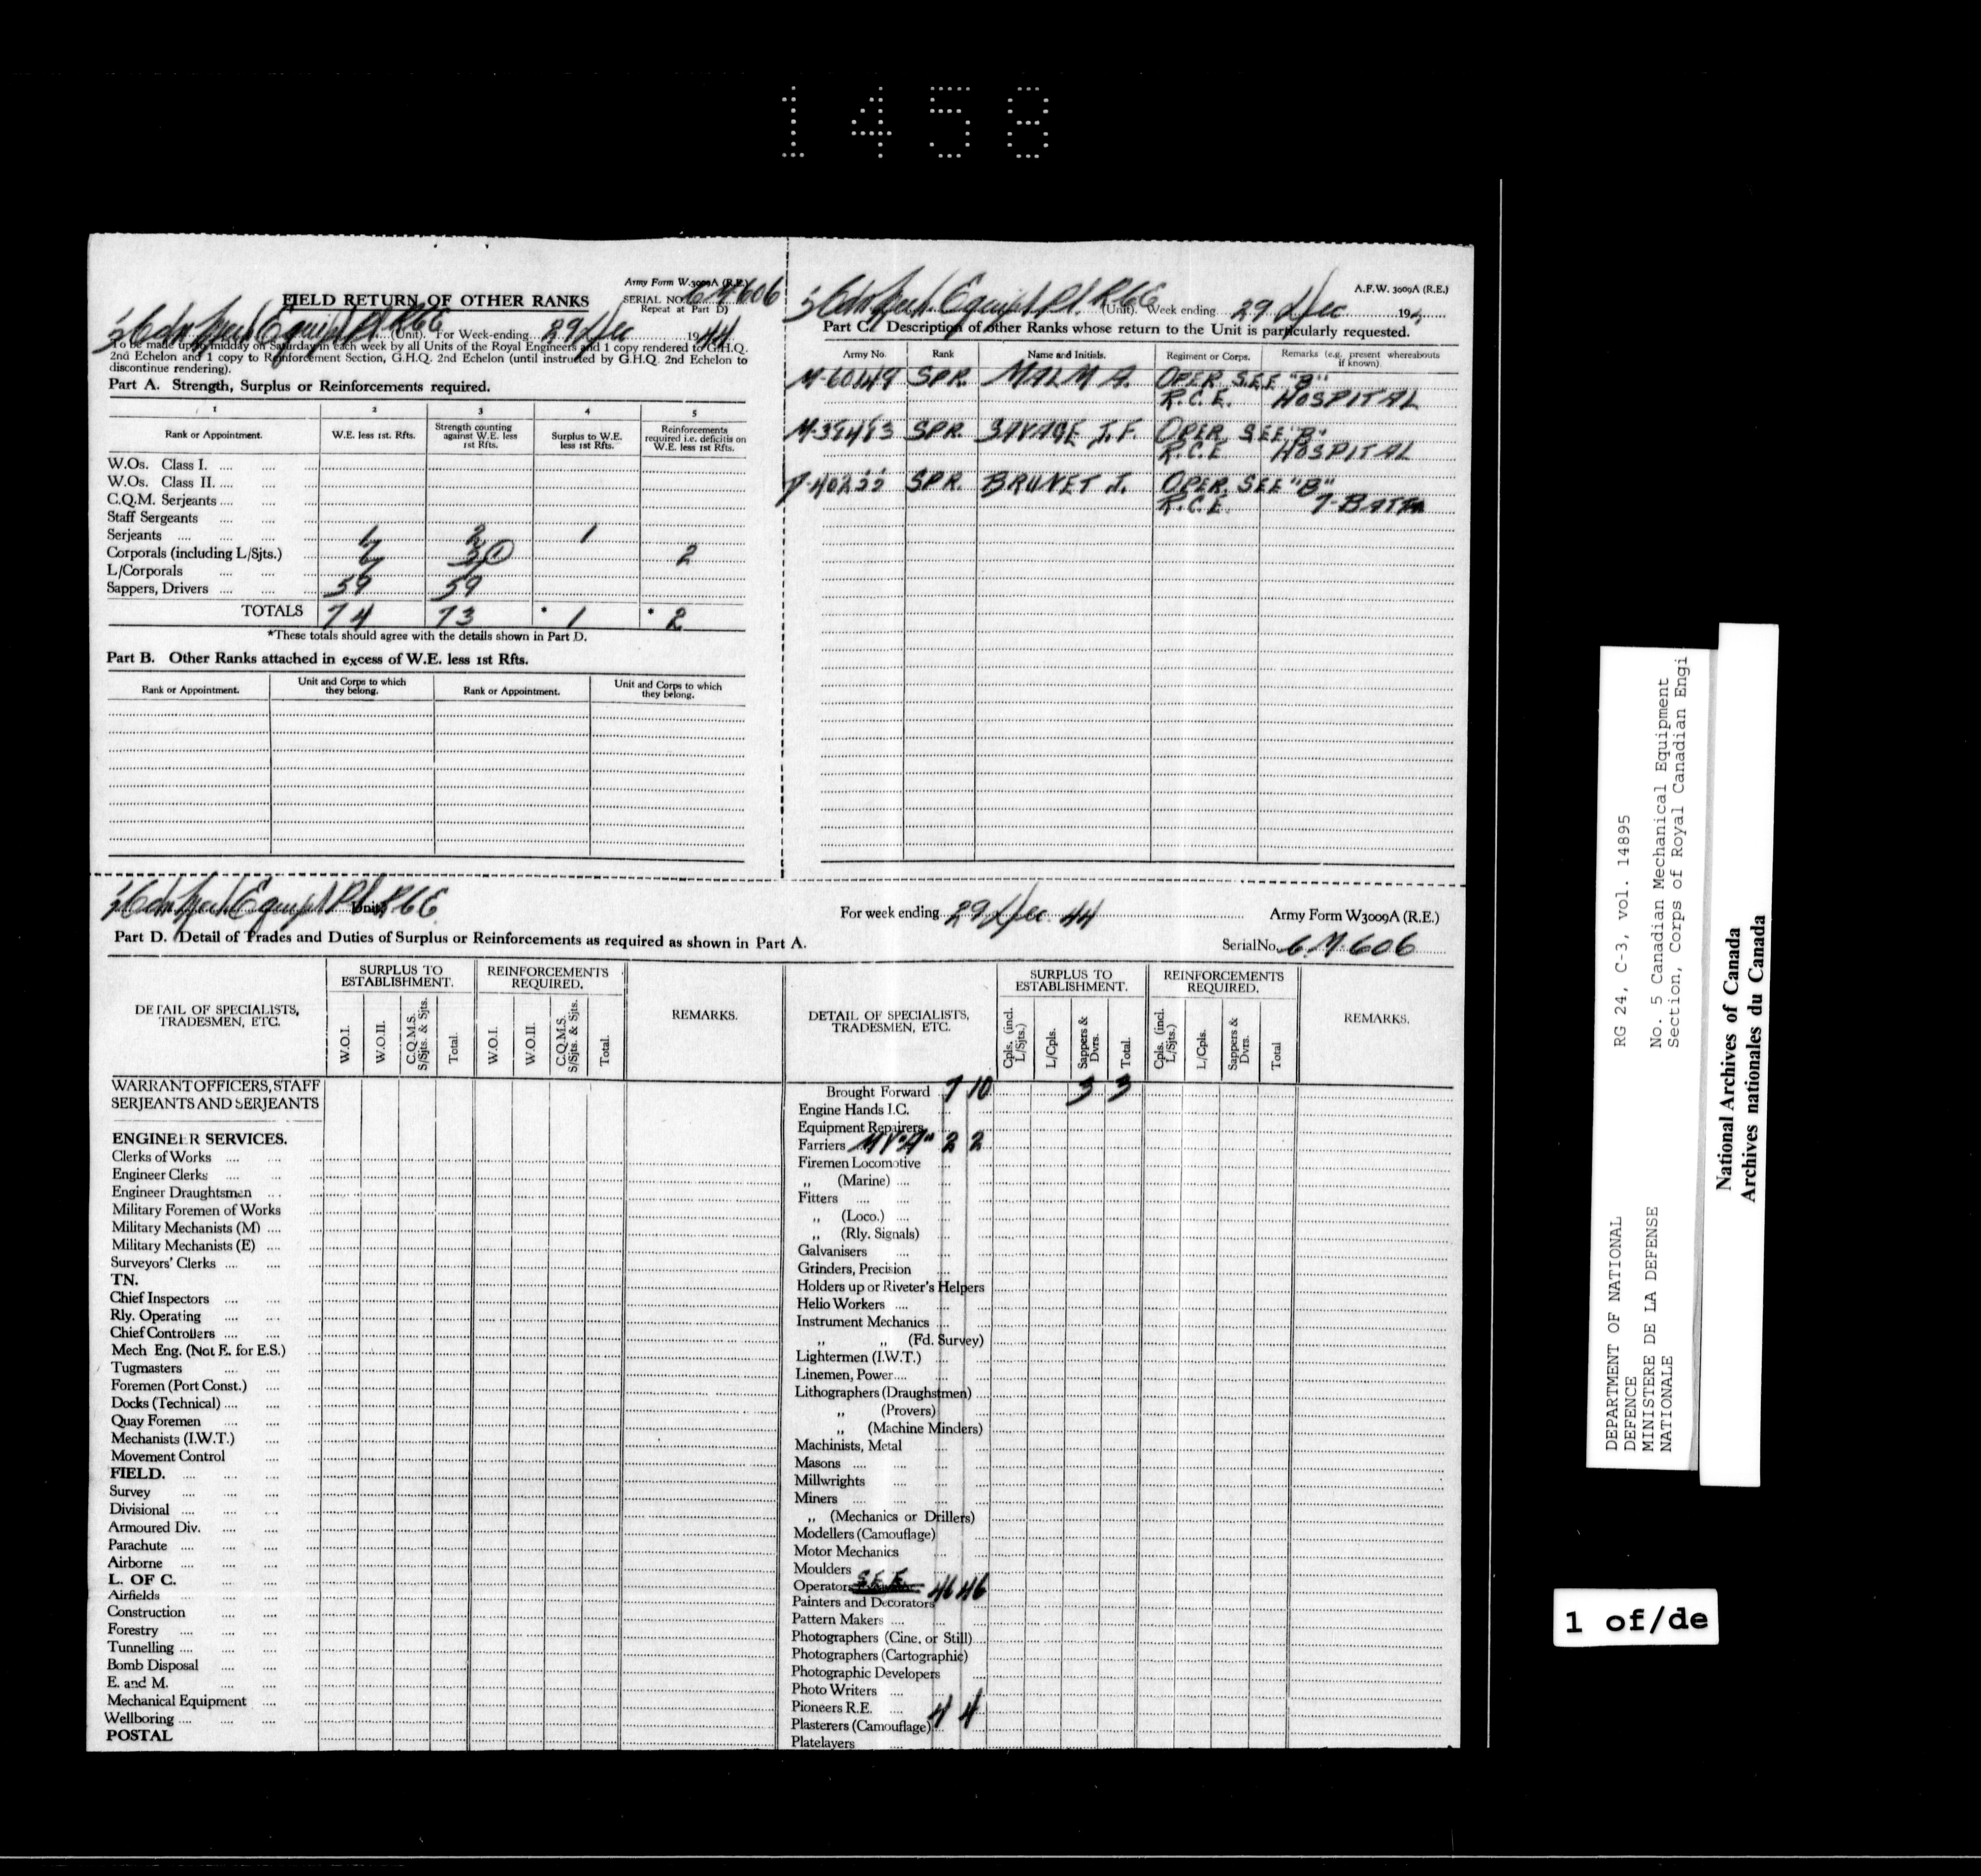 1458
Army Form W.3009A (R.E.)
FIELD RETURN OF OTHER RANKS
SERIAL NO.
606
Repeat at Part D)
Equipt Pl RCE (Unit). For Week-ending 29 Dec 1944
To be made up to midday on Saturday in each week by all Units of the Royal Engineers and 1 copy rendered to G.H.Q.
2nd Echelon and 1 copy to Reinforcement Section, G.H.Q. 2nd Echelon (until instructed by G.H.Q. 2nd Echelon to
discontinue rendering).
Part A. Strength, Surplus or Reinforcements required.
1 2 3 4 5
Rank or Appointment. W.E. less 1st. Rfts. Strength counting against W.E. less 1st Rfts. Surplus to W.E. less 1st Rfts. Reinforcements required i.e. deficits on W.E. less 1st Rfts.
W.Os. Class I. .... ....
W.Os. Class II. .... ....
C.Q.M. Serjeants .... ....
Staff Sergeants .... ....
Serjeants .... .... 1
Corporals (including L/Sjts.) 2
L/Corporals .... ....
Sappers, Drivers .... .... 59 59
TOTALS 74 73 * 1 * 2
*These totals should agree with the details shown in Part D.
Part B. Other Ranks attached in excess of W.E. less 1st Rfts.
Rank or Appointment. Unit and Corps to which they belong. Rank or Appointment. Unit and Corps to which they belong.
A.F.W. 3009A (R.E.)
Equipt Pl RCE (Unit). Week ending 29 Dec 194
Part C. Description of other Ranks whose return to the Unit is particularly requested.
Army No. Rank Name and Initials. Regiment or Corps. Remarks (e.g. present whereabouts if known).
SPR. MALM A. OPER. S.E.E "B"
R.C.E. HOSPITAL
SPR. SAVAGE J.F. OPER. SEE "B"
R.C.E HOSPITAL
SPR. BRUNET J. OPER. SEE "B"
R.C.E. 7-BATTN
Equipt Pl Unit RCE
For week ending 29 Dec 44 Army Form W3009A (R.E.)
Part D. Detail of Trades and Duties of Surplus or Reinforcements as required as shown in Part A.
Serial No. 606
DETAIL OF SPECIALISTS, TRADESMEN, ETC. SURPLUS TO ESTABLISHMENT. REINFORCEMENTS REQUIRED. REMARKS.
W.O.I. W.O.II. C.Q.M.S. S/Sjts. & Sjts. Total. W.O.I. W.O.II. C.Q.M.S. S/Sjts. & Sjts. Total.
WARRANT OFFICERS, STAFF
SERJEANTS AND SERJEANTS
ENGINEER SERVICES.
Clerks of Works .... ....
Engineer Clerks .... ....
Engineer Draughtsmen ....
Military Foremen of Works
Military Mechanists (M) ....
Military Mechanists (E) ....
Surveyors' Clerks .... ....
TN.
Chief Inspectors .... ....
Rly. Operating .... ....
Chief Controllers .... ....
Mech Eng. (Not E. for E.S.)
Tugmasters .... ....
Foremen (Port Const.) ....
Docks (Technical) .... ....
Quay Foremen .... ....
Mechanists (I.W.T.) ....
Movement Control ....
FIELD. .... .... ....
Survey .... .... ....
Divisional .... .... ....
Armoured Div. .... ....
Parachute .... .... ....
Airborne .... .... ....
L. OF C. .... ....
Airfields .... .... ....
Construction .... ....
Forestry .... ....
Tunnelling .... .... ....
Bomb Disposal .... ....
E. and M. .... ....
Mechanical Equipment ....
Wellboring .... .... ....
POSTAL
DETAIL OF SPECIALISTS, TRADESMEN, ETC. SURPLUS TO ESTABLISHMENT. REINFORCEMENTS REQUIRED. REMARKS.
Cpls. (incl. L/Sjts.) L/Cpls. Sappers & Dvrs. Total. Cpls. (incl. L/Sjts.) L/Cpls. Sappers & Dvrs. Total
Brought Forward 7 10 3 3
Engine Hands I.C.
Equipment Repairers
Farriers 2 2
Firemen Locomotive
,, (Marine) ....
Fitters ....
,, (Loco.) ....
,, (Rly. Signals)
Galvanisers ....
Grinders, Precision
Holders up or Riveter's Helpers
Helio Workers ....
Instrument Mechanics ....
,, ,, (Fd. Survey)
Lightermen (I.W.T.)
Linemen, Power....
Lithographers (Draughstmen)
,, (Provers)
,, (Machine Minders)
Machinists, Metal
Masons .... ....
Millwrights ....
Miners .... ....
,, (Mechanics or Drillers)
Modellers (Camouflage)
Motor Mechanics
Moulders
Operators S.E.E. 46 46
Painters and Decorators
Pattern Makers ....
Photographers (Cine. or Still)....
Photographers (Cartographic)
Photographic Developers
Photo Writers ....
Pioneers R.E. .... 4 4
Plasterers (Camouflage)
Platelayers ....
DEPARTMENT OF NATIONAL
DEFENCE
MINISTERE DE LA DEFENSE
NATIONALE
RG 24, C-3, vol. 14895
No. 5 Canadian Mechanical Equipment
Section, Corps of Royal Canadian Engi
National Archives of Canada
Archives nationales du Canada
1 of/de